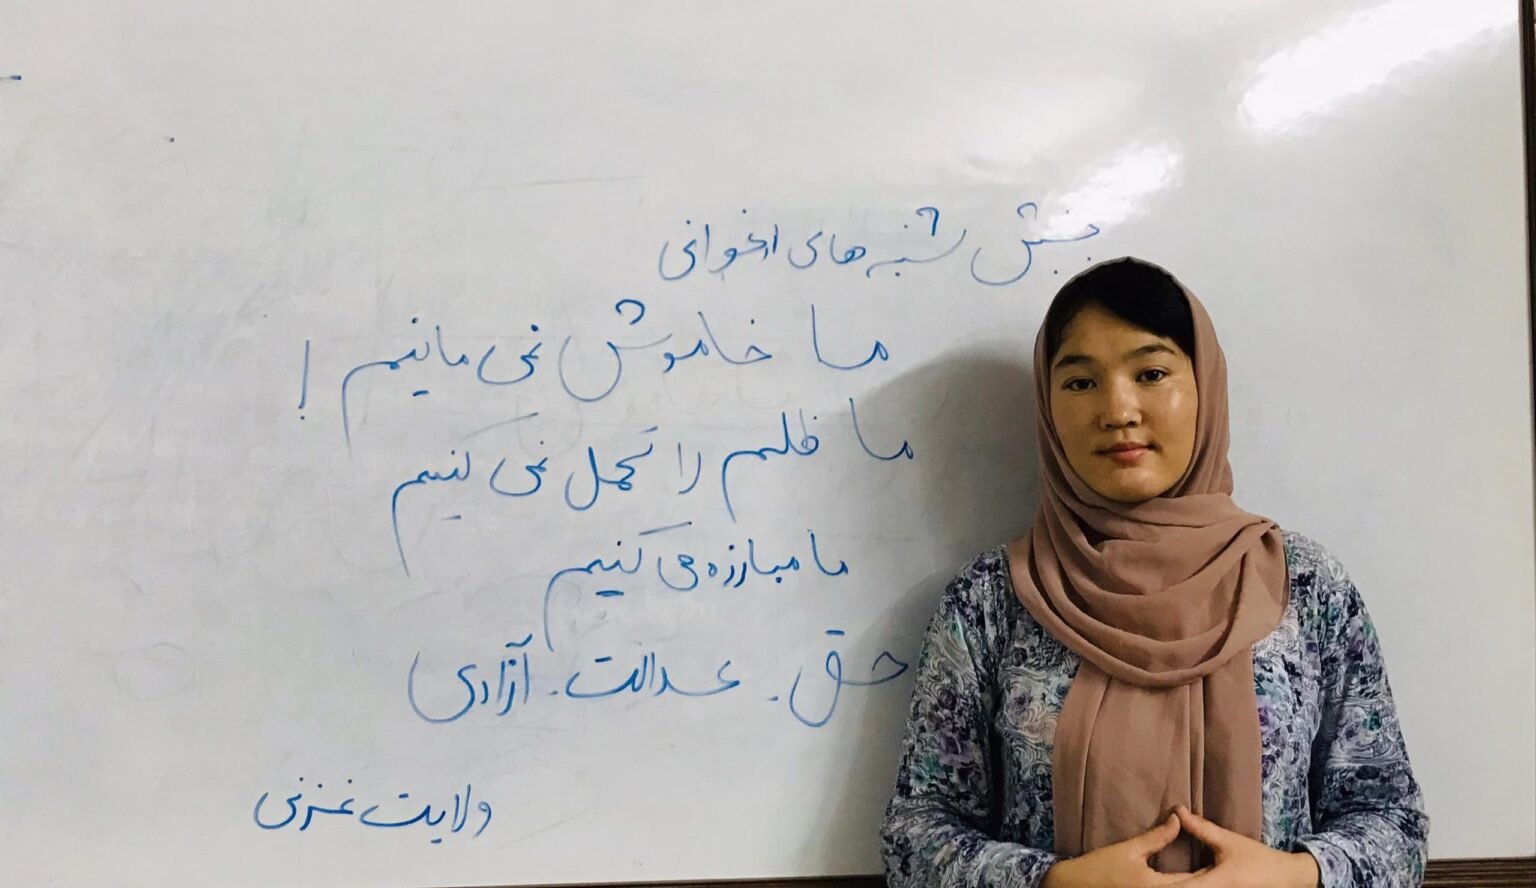 جنبش شنبه های ارغوانی
ما خاموش نمی مانیم !
ما ظلم را تحمل نمی کنیم
ما مبارزه می کنیم
حق . عدالت . آزادی
ولایت غزنی